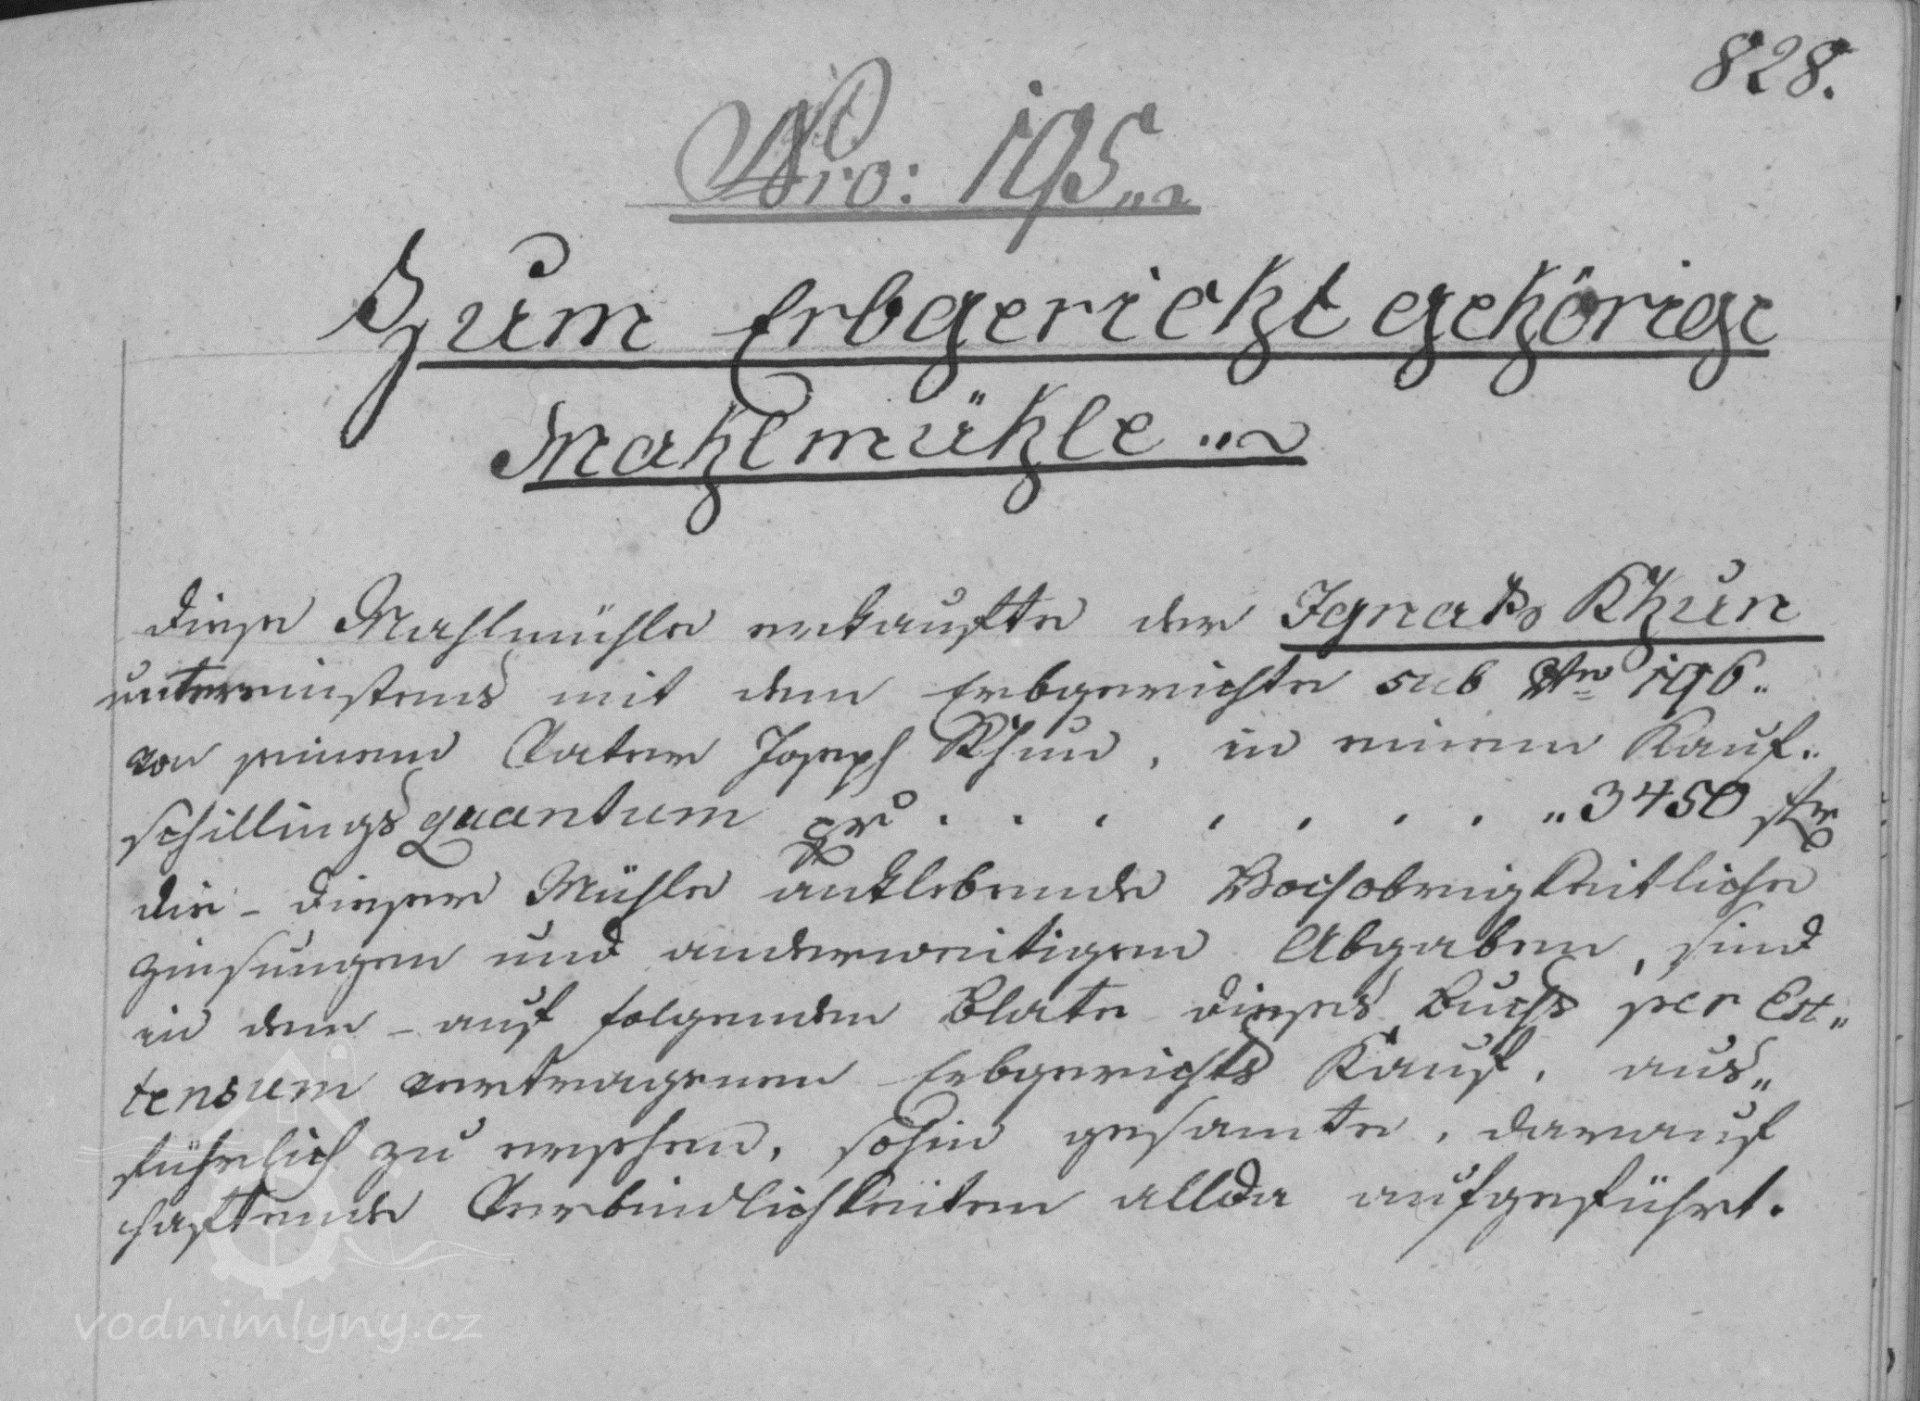 828.
Nro: 195.
Zum Erbgericht gehörige
Mahlmühle
Diese Mahlmühle erkaufte der Ignatz Khun
untereinstens mit dem Erbgerichte sub Nro 196.
von seinem Vater Joseph Khun, in einem Kauf-
schillings quantum pr . . . . . . . . 3450 fr
die - dieser Mühle anklebende Hochobrigkeitliche
Zinsungen und anderweitigen Abgaben, sind
in dem - auf folgendem Blate dieses Buchs per Ext-
tensum vertragenen Erbgerichts Kauf, aus-
führlich zu ersehen, sohin gesamte, darauf
haftende Verbindlichkeiten allda aufgeführt.
vodnimlyny.cz